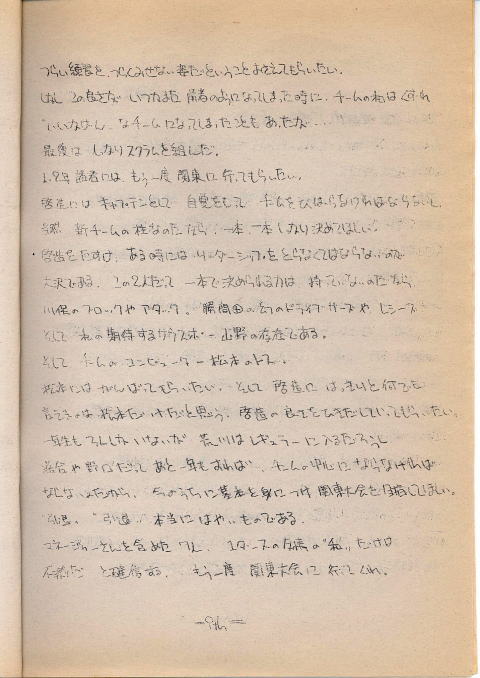 つらい練習を、つらくみせない事だということをおぼえてもらいたい。
しかし、この良さが いつかまた 前者のようになってしまった時に、チームの和はくずれ
"いいかげん"なチームになってしまったこともあったな…
最後は しっかりスクラムを組んだ。
1.2年諸君には、もう一度 関東に 行ってもらいたい。
啓浩には キャプテンとして 自覚をもって チームをひっぱらなければならないし、
新チームの柱なのだから 一本、一本しっかり決めてほしい。
をたすけ、ある時には リーダーシップをとらなくてはならないので
大変である。この2人だって 一本で決められる力は 持っているのだから
のブロックやアタック、勝間田の のドライブサーブや レシーブ
そして 私の期待するサウスポー 山野の存在である。
そして チームの コンピューター 松本のトス!
松本には がんばってもらいたい。そして 啓浩に はっきりと何でも
言えるのは 松本だけだと思う。啓浩の 良さをひきだしていってもらいたい。
一年生も3人しかいないが 荒川はレギュラーに入るだろうし
や野口だって あと一年もすれば、チームの中心に ならなければ
ならないのだから、今のうちに基本を身につけ 関東大会を目指してほしい。
"引退" 本当に はやいものである。
マネージャーさんを含めた 7人、 の "私" だけは
と確信する。 もう一度 関東大会に 行ってくれ。